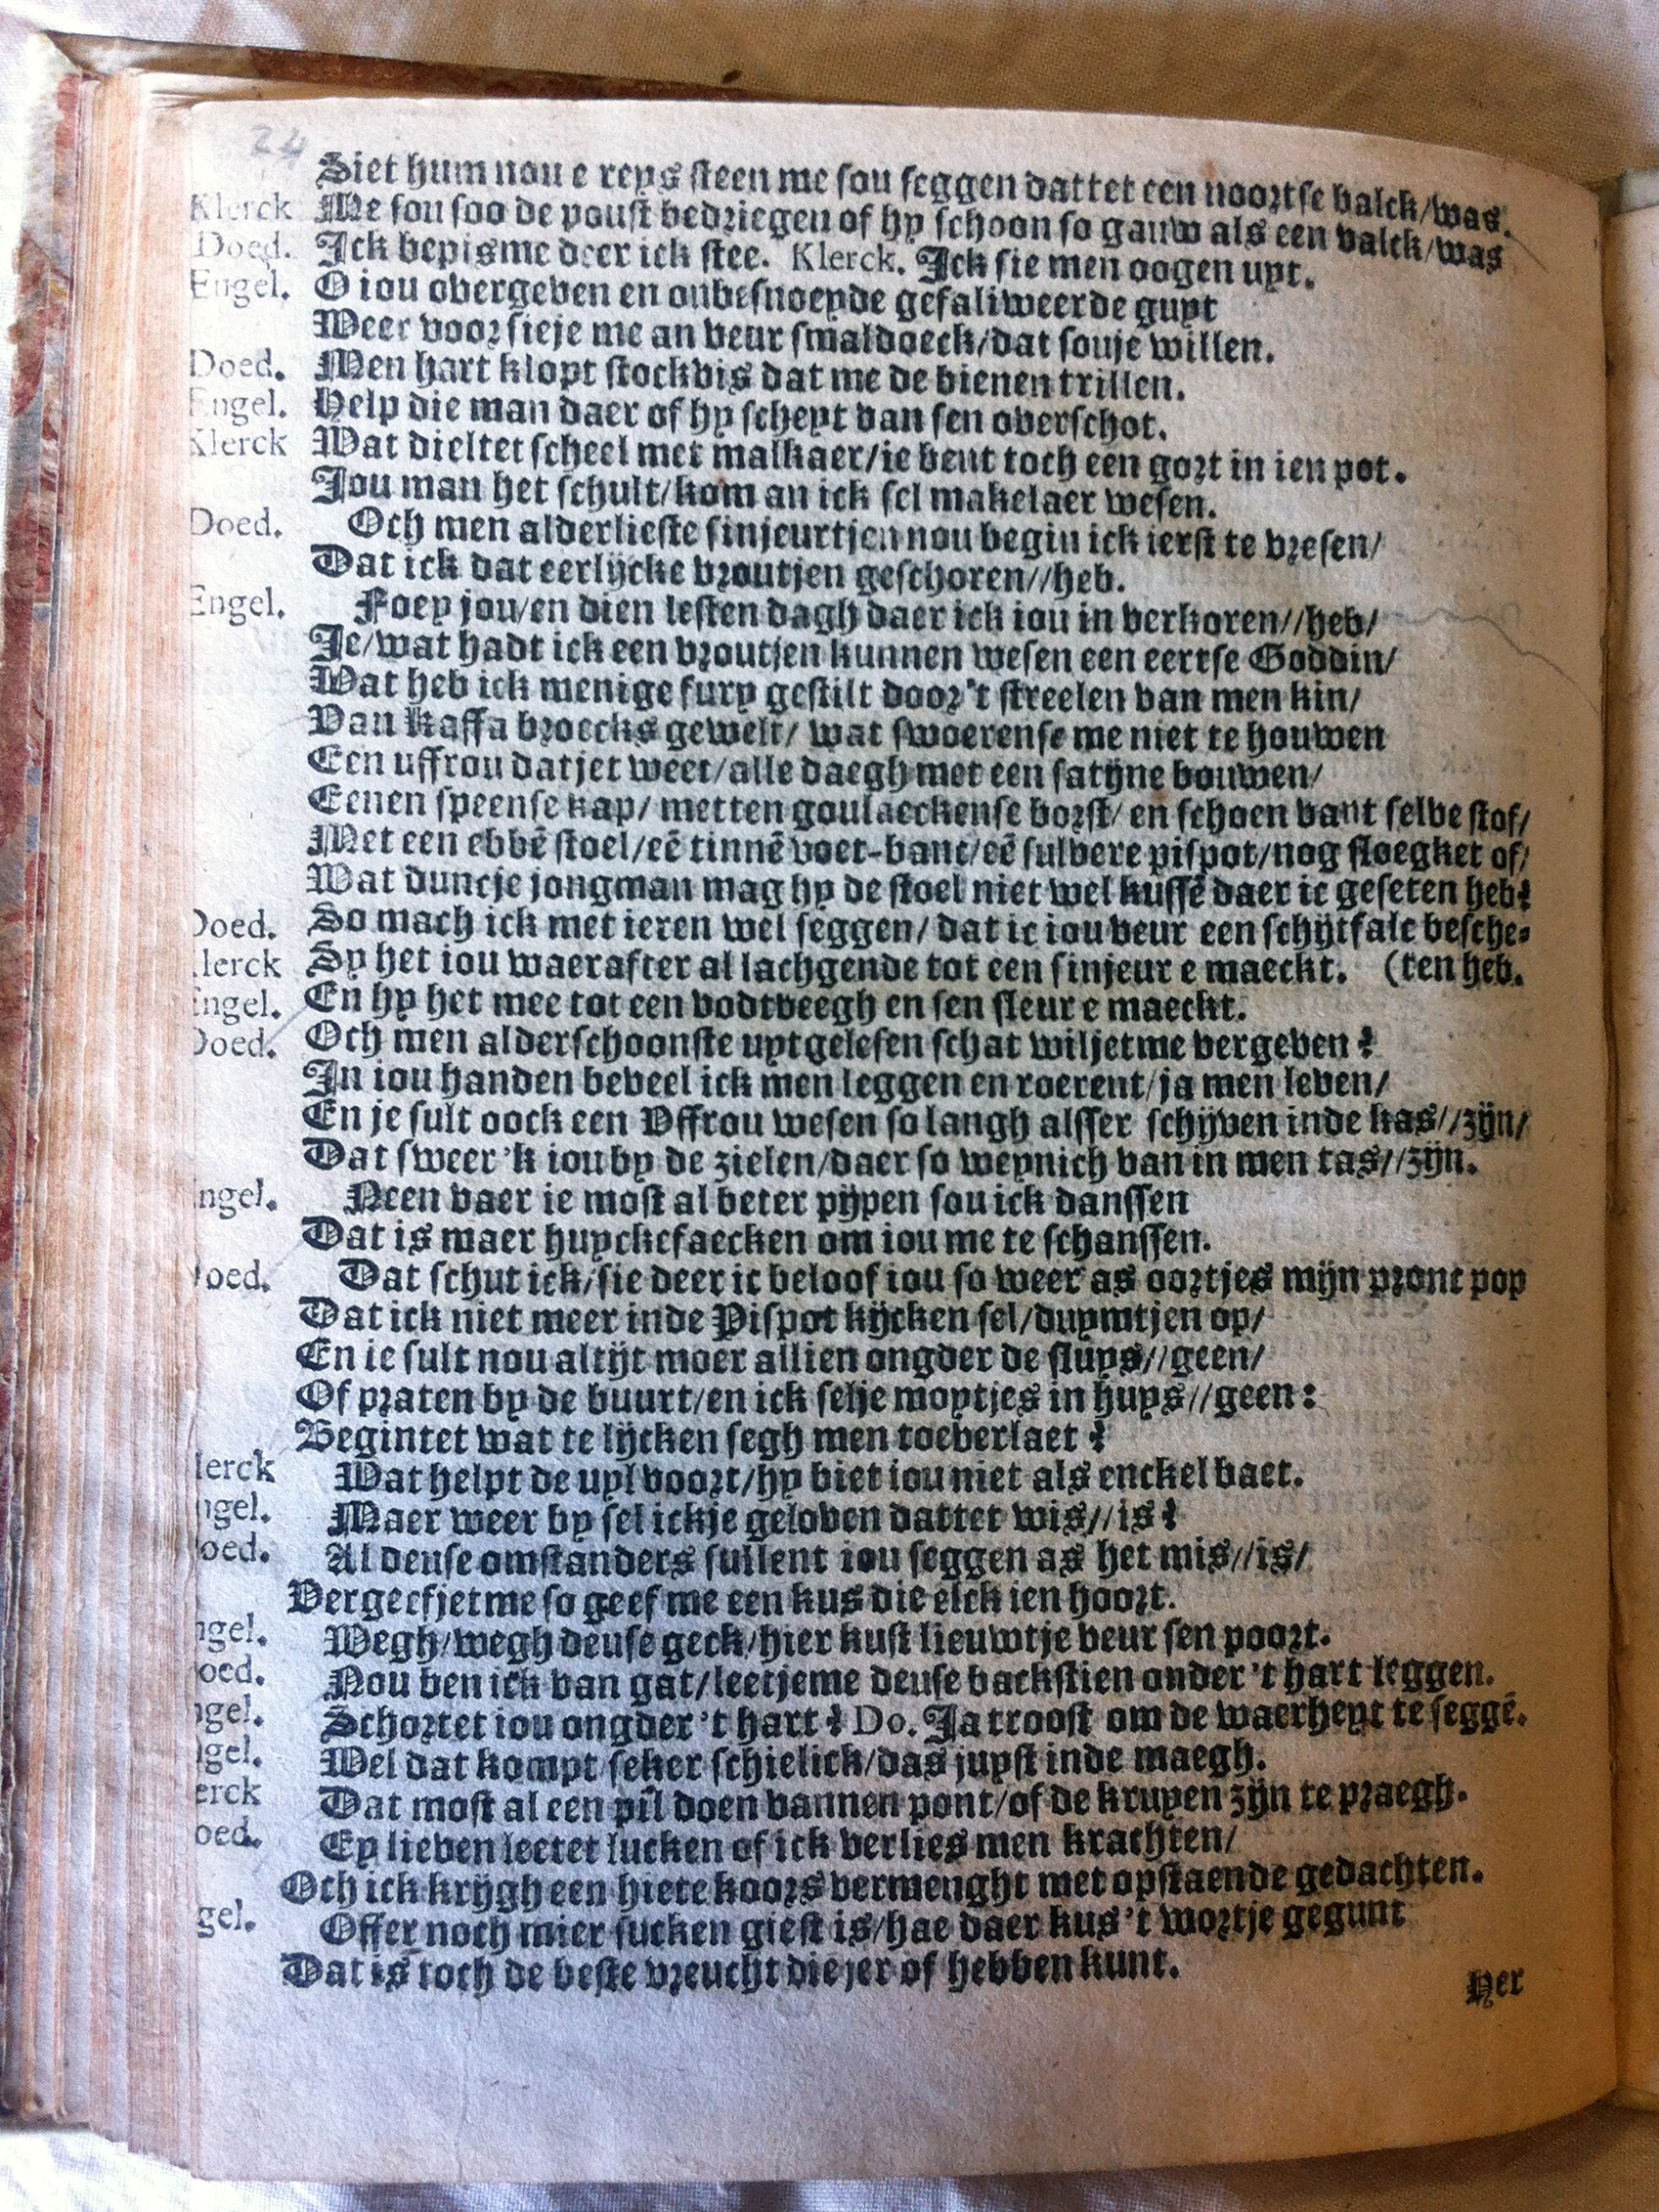 24
Siet hum nou e reys steen me sou seggen dattet een noortse balck/was.
Klerck Me sou soo de poust bedriegen of hy schoon so gauw als een valck/was
Doed. Ick bepisme deer ick stee. Klerck. Ick sie men oogen uyt.
Engel. O iou overgeven en onbesnoeyde gefaliweerde guyt
Weer voor sieje me an veur smaldoeck/dat souje willen.
Doed. Men hart klopt stockvis dat me de bienen trillen.
Engel. Help die man daer of hy scheyt van sen overschot.
Klerck Wat dieltet scheel met malkaer/ie bent toch een gort in ien pot.
Jou man het schult/kom an ick sel makelaer wesen.
Doed. Och men alderlieste sinjeurtjen nou begin ick ierst te vresen/
Dat ick dat eerlijcke vroutjen geschoren//heb.
Engel. Foey jou/en dien lesten dagh daer ick iou in verkoren//heb/
Je/wat hadt ick een vroutjen kunnen wesen een eertse Goddin/
Wat heb ick menige fury gestilt door 't streelen van men kin/
Van Kaffa broecks gewelt/ wat swoerense me niet te houwen
Een uffrou datjet weet/alle daegh met een satijne bouwen/
Eenen speense kap/ metten goulaeckense borst/ en schoen vant selve stof/
Met een ebbē stoel/eē tinnē voet-banc/eē sulvere pispot/nog sloegket of/
Wat duncje jongman mag hy de stoel niet wel kussē daer ic geseten heb?
Doed. So mach ick met ieren wel seggen/ dat ic iou veur een schijtfalt besche-
lerck Sy het iou waerafter al lachgende tot een sinjeur e maeckt. (ten heb.
Engel. En hy het mee tot een vodtveegh en sen sleur e maeckt.
Doed. Och men alderschoonste uytgelesen schat wiljetme vergeven?
In iou handen beveel ick men leggen en roerent/ja men leven/
En je sult oock een Uffrou wesen so langh alsser schijven inde kas//zijn/
Dat sweer 'k iou by de zielen/daer so weynich van in men tas//zijn.
ngel. Neen vaer ie most al beter pijpen sou ick danssen
Dat is maer huyckefaecken om iou me te schanssen.
oed. Dat schut ick/sie deer ic beloof iou so weer as oortjes mijn pront pop
Dat ick niet meer inde Pispot kijcken sel/duymtjen op/
En ie sult nou altijt moer allien ongder de sluys//geen/
Of praten by de buurt/en ick selje moytjes in huys//geen:
Begintet wat te lijcken segh men toeverlaet?
lerck Wat helpt de uyl voort/hy biet iou niet als enckel baet.
ngel. Maer weer by sel ickje geloven dattet wis//is?
oed. Al deuse omstanders sullent iou seggen as het mis//is/
Vergeefjetme so geef me een kus die elck ien hoort.
ngel. Wegh/wegh deuse geck/hier kust lieuwtje veur sen poort.
oed. Nou ben ick van gat/leetjeme deuse backstien onder 't hart leggen.
ngel. Schortet iou ongder 't hart? Do. Ja troost om de waerheyt te seggē.
gel. Wel dat kompt seker schielick/das juyst inde maegh.
erck Dat most al een pil doen vannen pont/of de kruyen zijn te praegh.
oed. Ey lieven leetet lucken of ick verlies men krachten/
Och ick krijgh een hiete koors vermenght met opstaende gedachten.
gel. Offer noch mier sucken giest is/hae daer kus 't wortje gegunt
Dat is toch de beste vreucht die jer of hebben kunt.
Her